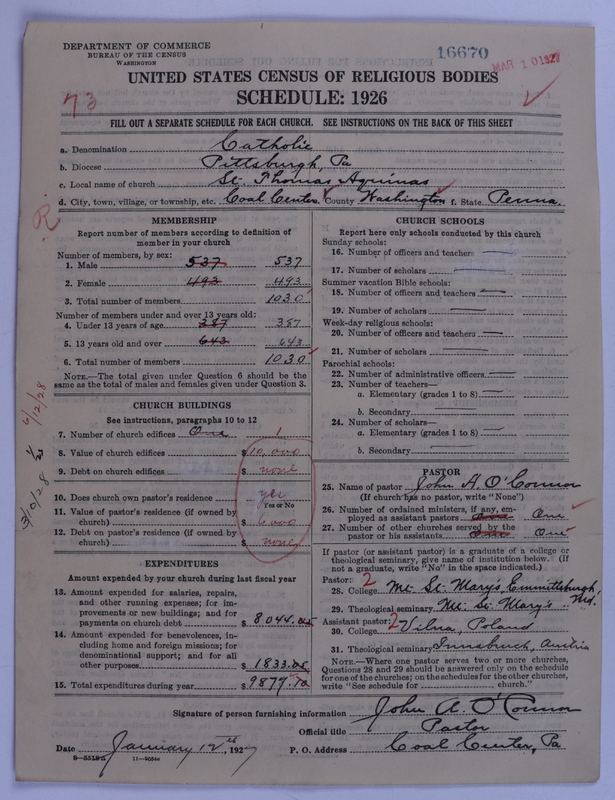 DEPARTMENT OF COMMERCE
BUREAU OF THE CENSUS
WASHINGTON
16670
MAR 10 1927
UNITED STATES CENSUS OF RELIGIOUS BODIES
SCHEDULE: 1926
73
FILL OUT A SEPARATE SCHEDULE FOR EACH CHURCH. SEE INSTRUCTIONS ON THE BACK OF THIS SHEET
a. Denomination Catholic
b. Diocese Pittsburgh, Pa
c. Local name of church St. Thomas Aquinas
d. City, town, village, or township, etc. Coal Center. County Washington f. State Penna.
R
MEMBERSHIP
Report number of members according to definition of
member in your church
Number of members, by sex:
1. Male 537 537
2. Female 493 493
3. Total number of members 1030
Number of members under and over 13 years old:
4. Under 13 years of age 387 387
5. 13 years old and over 643 643
6. Total number of members 1030
NOTE.—The total given under Question 6 should be the
same as the total of males and females given under Question 3.
CHURCH BUILDINGS
See instructions, paragraphs 10 to 12
7. Number of church edifices One 1
8. Value of church edifices $10,000
9. Debt on church edifices $none
10. Does church own pastor's residence yes
Yes or No
11. Value of pastor's residence (if owned by
church) $6,000
12. Debt on pastor's residence (if owned by
church) $none
4/12/28
3/10/28
EXPENDITURES
Amount expended by your church during last fiscal year
13. Amount expended for salaries, repairs,
and other running expenses; for im-
provements or new buildings; and for
payments on church debt $8044.05
14. Amount expended for benevolences, in-
cluding home and foreign missions; for
denominational support; and for all
other purposes $1833.05
15. Total expenditures during year $9877.10
CHURCH SCHOOLS
Report here only schools conducted by this church
Sunday schools:
16. Number of officers and teachers
17. Number of scholars
Summer vacation Bible schools:
18. Number of officers and teachers
19. Number of scholars
Week-day religious schools:
20. Number of officers and teachers
21. Number of scholars
Parochial schools:
22. Number of administrative officers
23. Number of teachers—
a. Elementary (grades 1 to 8)
b. Secondary
24. Number of scholars—
a. Elementary (grades 1 to 8)
b. Secondary
PASTOR
25. Name of pastor John A. O'Connor
(If church has no pastor, write "None")
26. Number of ordained ministers, if any, em-
ployed as assistant pastors One One
27. Number of other churches served by the
pastor or his assistants One One
If pastor (or assistant pastor) is a graduate of a college or
theological seminary, give name of institution below. (If
not a graduate, write "No" in the space indicated.)
Pastor: 2
28. College Mt. St. Mary's, Emmittsburgh, Md.
29. Theological seminary Mt. St. Mary's " "
Assistant pastor: 2
30. College Vilna, Poland
31. Theological seminary Innsbruck, Austria
NOTE.—Where one pastor serves two or more churches,
Questions 28 and 29 should be answered only on the schedule
for one of the churches; on the schedules for the other churches,
write "See schedule for church."
Signature of person furnishing information John A. O'Connor
Official title Pastor
Date January 12th, 1927 P. O. Address Coal Center, Pa
8—5518a 11—9054a